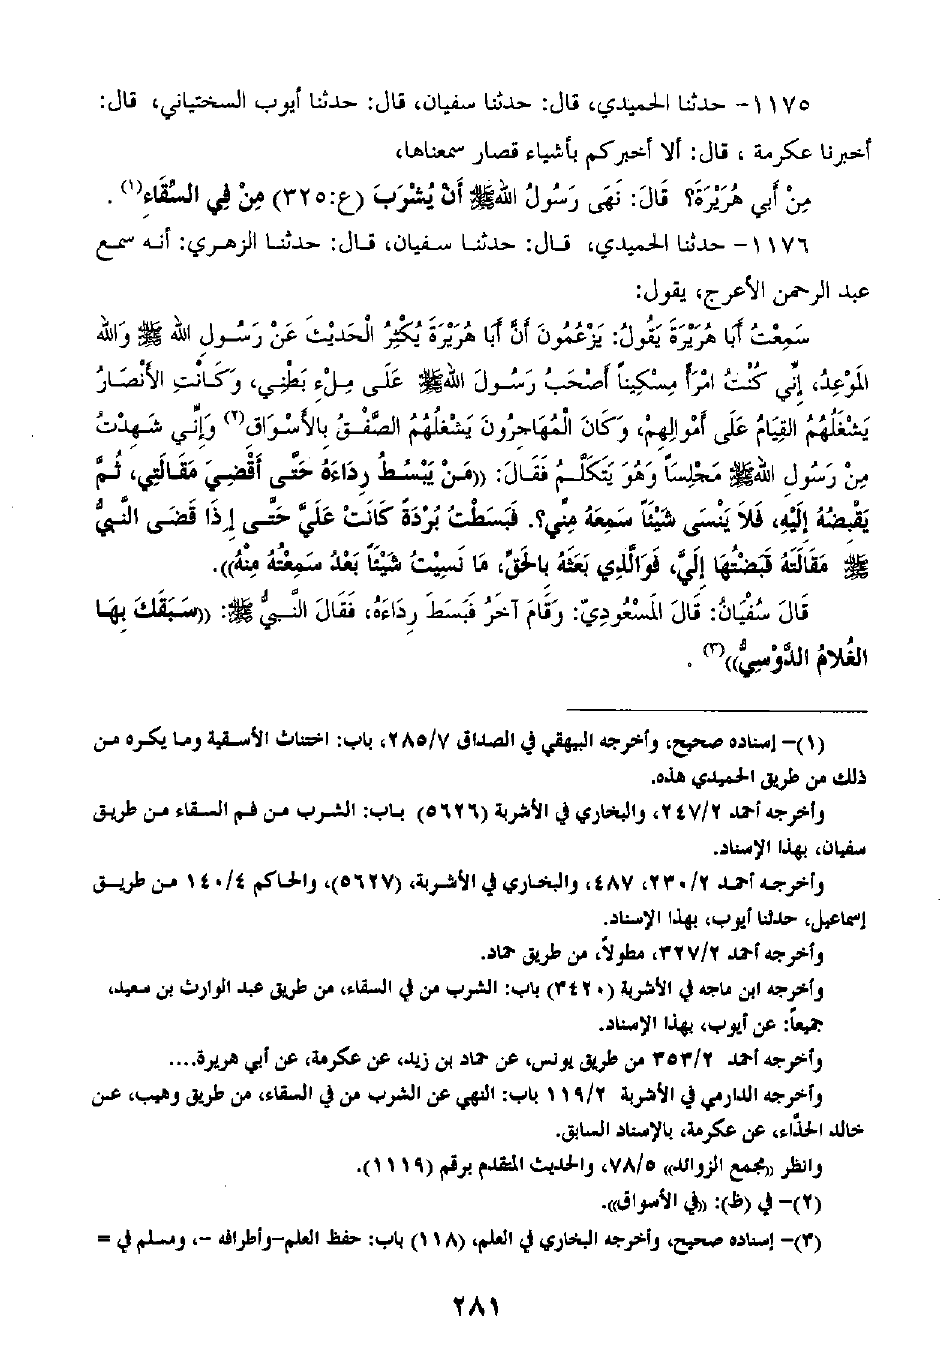 ١١٧٥- حدثنا الحميدي، قال: حدثنا سفيان، قال: حدثنا أيوب السختياني، قال:
أخبرنا عكرمة ، قال: ألا أخبركم بأشياء قصار سمعناها،
مِنْ أَبي هُرَيْرَةَ؟ قَالَ: نَهَى رَسُولُ اللهﷺ أَنْ يُشْرَبَ (ع:٣٢٥) مِنْ فِي السِّقَاءِ(١) .
١١٧٦- حدثنا الحميدي، قال: حدثنا سفيان، قال: حدثنا الزهري: أنه سمع
عبد الرحمن الأعرج، يقول:
سَمِعْتُ أَبَا هُرَيْرَةَ يَقُولُ: يَزْعُمُونَ أَنَّ أَبَا هُرَيْرَةَ يُكْثِرُ الْحَدِيثَ عَنْ رَسُولِ الله ﷺ وَالله
الْمَوْعِدُ، إِنِّي كُنْتُ امْرَأً مِسْكِيناً أَصْحَبُ رَسُولَ اللهﷺ عَلَى مِلْءِ بَطْنِي، وَكَانَتِ الأَنْصَارُ
يَشْغَلُهُمُ القِيَامُ عَلَى أَمْوَالِهِمْ، وَكَانَ الْمُهَاجِرُونَ يَشْغَلُهُمُ الصَّفْقُ بِالأَسْوَاقِ(٢) وَإِنِّي شَهِدْتُ
مِنْ رَسُولِ اللهﷺ مَجْلِساً وَهُوَ يَتَكَلَّمُ فَقَالَ: ((مَنْ يَبْسُطُ رِدَاءَهُ حَتَّى أَقْضِيَ مَقَالَتِي، ثُمَّ
يَقْبِضُهُ إِلَيْهِ، فَلاَ يَنْسَى شَيْئاً سَمِعَهُ مِنِّي؟. فَبَسَطْتُ بُرْدَةً كَانَتْ عَلَيَّ حَتَّى إِذَا قَضَى النَّبِيُّ
ﷺ مَقَالَتَهُ قَبَضْتُهَا إِلَيَّ، فَوَالَّذِي بَعَثَهُ بِالحَقِّ، مَا نَسِيْتُ شَيْئاً بَعْدُ سَمِعْتُهُ مِنْهُ)).
قَالَ سُفْيَانُ: قَالَ المَسْعُودِيّ: وَقَامَ آخَرُ فَبَسَطَ رِدَاءَهُ، فَقَالَ النَّبِيُّ ﷺ: ((سَبَقَكَ بِهَا
الغُلامُ الدَّوْسِيُّ))(٣) .
(١)- إسناده صحيح، وأخرجه البيهقي في الصداق ٢٨٥/٧، باب: اختناث الأسقية وما يكره من
ذلك من طريق الحميدي هذه.
وأخرجه أحمد ٢٤٧/٢، والبخاري في الأشربة (٥٦٢٦) باب: الشرب من فم السقاء من طريق
سفيان، بهذا الإسناد.
وأخرجه أحمد ٢٣٠/٢، ٤٨٧، والبخاري في الأشربة، (٥٦٢٧)، والحاكم ١٤٠/٤ من طريق
إسماعيل، حدثنا أيوب، بهذا الإسناد.
وأخرجه أحمد ٣٢٧/٢، مطولاً، من طريق حماد.
وأخرجه ابن ماجه في الأشربة (٣٤٢٠) باب: الشرب من في السقاء، من طريق عبد الوارث بن سعيد،
جميعاً: عن أيوب، بهذا الإسناد.
وأخرجه أحمد ٣٥٣/٢ من طريق يونس، عن حماد بن زيد، عن عكرمة، عن أبي هريرة....
وأخرجه الدارمي في الأشربة ١١٩/٢ باب: النهي عن الشرب من في السقاء، من طريق وهيب، عن
خالد الحذّاء، عن عكرمة، بالإسناد السابق.
وانظر ((مجمع الزوائد)) ٧٨/٥، والحديث المتقدم برقم (١١١٩).
(٢)- في (ظ): ((في الأسواق)).
(٣)- إسناده صحيح، وأخرجه البخاري في العلم، (١١٨) باب: حفظ العلم-وأطرافه -، ومسلم في =
٢٨١